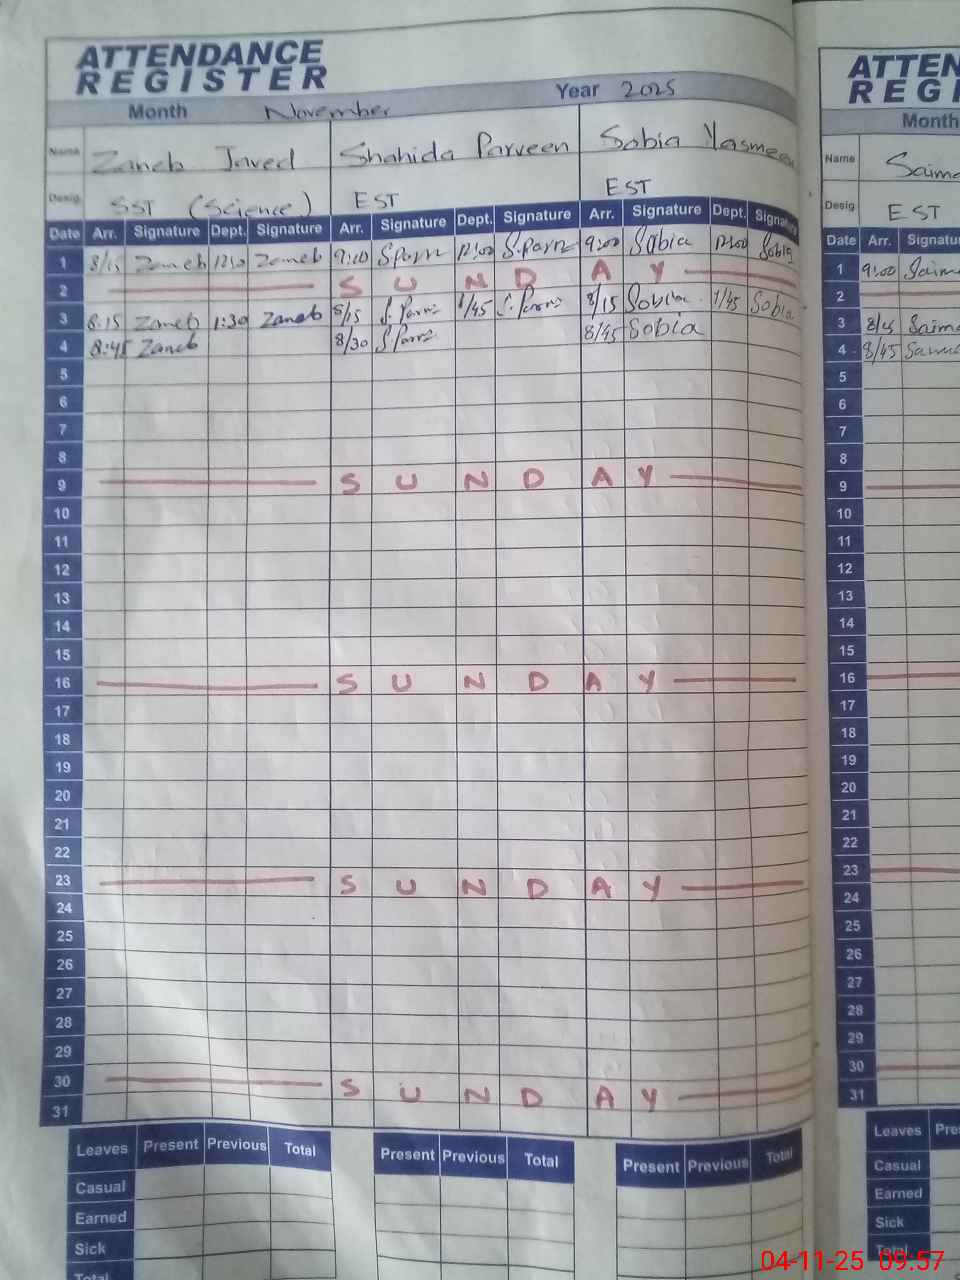 ATTENDANCE
REGISTER
Month November Year 2025
Name Zaneb Javed Shahida Parveen Sobia Yasmeen
Desig. SST (Science) EST EST
Date Arr. Signature Dept. Signature Arr. Signature Dept. Signature Arr. Signature Dept. Signature
1 8/15 Zaneb 12:30 Zaneb 9:00 S.Parn 12:00 S.Parn 9:00 Sobia 12:00 Sobia
2 S U N D A Y
3 8:15 Zaneb 1:30 Zaneb 8/15 S.Parn 1/45 S.Parn 8/15 Sobia 1/45 Sobia
4 8:45 Zaneb 8/30 S.Parn 8/45 Sobia
5
6
7
8
9 S U N D A Y
10
11
12
13
14
15
16 S U N D A Y
17
18
19
20
21
22
23 S U N D A Y
24
25
26
27
28
29
30 S U N D A Y
31
Leaves Present Previous Total Present Previous Total Present Previous Total
Casual
Earned
Sick
Total
ATTEN
REGI
Month
Name Saima
Desig EST
Date Arr. Signatu
1 9:00 Saima
2
3 8/45 Saima
4 8/45 Saima
5
6
7
8
9
10
11
12
13
14
15
16
17
18
19
20
21
22
23
24
25
26
27
28
29
30
31
Leaves Pre
Casual
Earned
Sick
Total
04-11-25 09:57